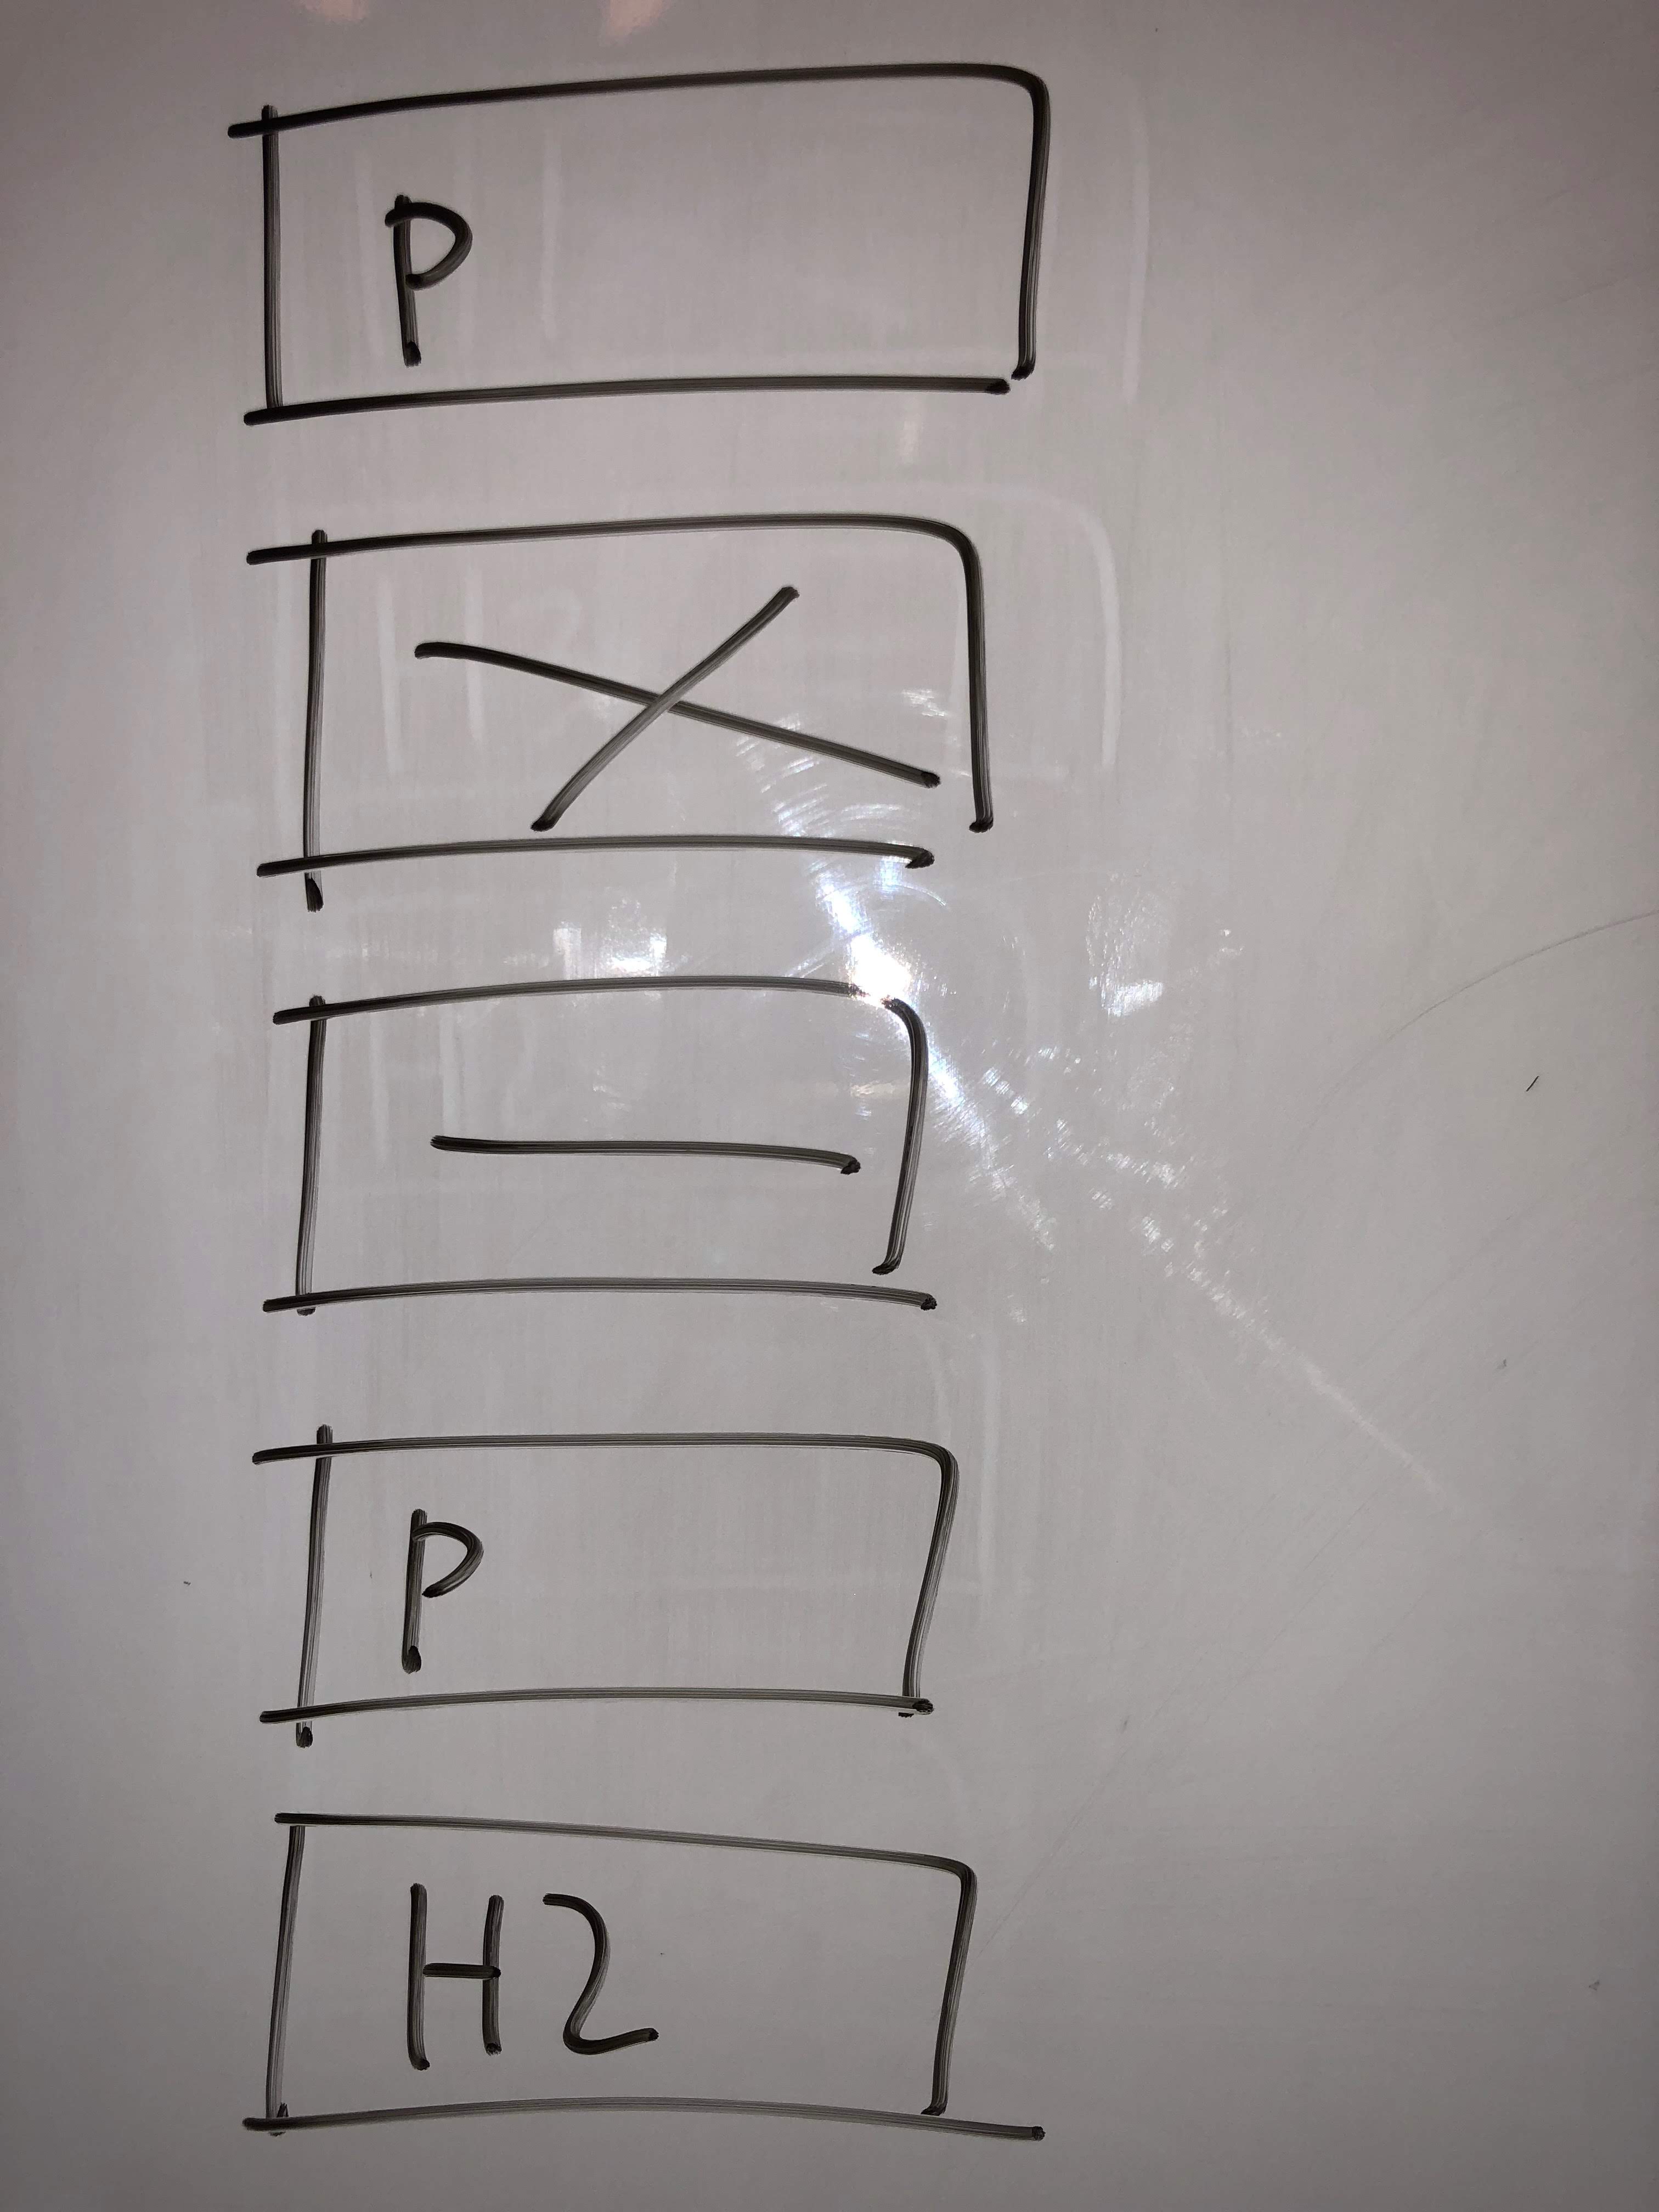 P
P
H2